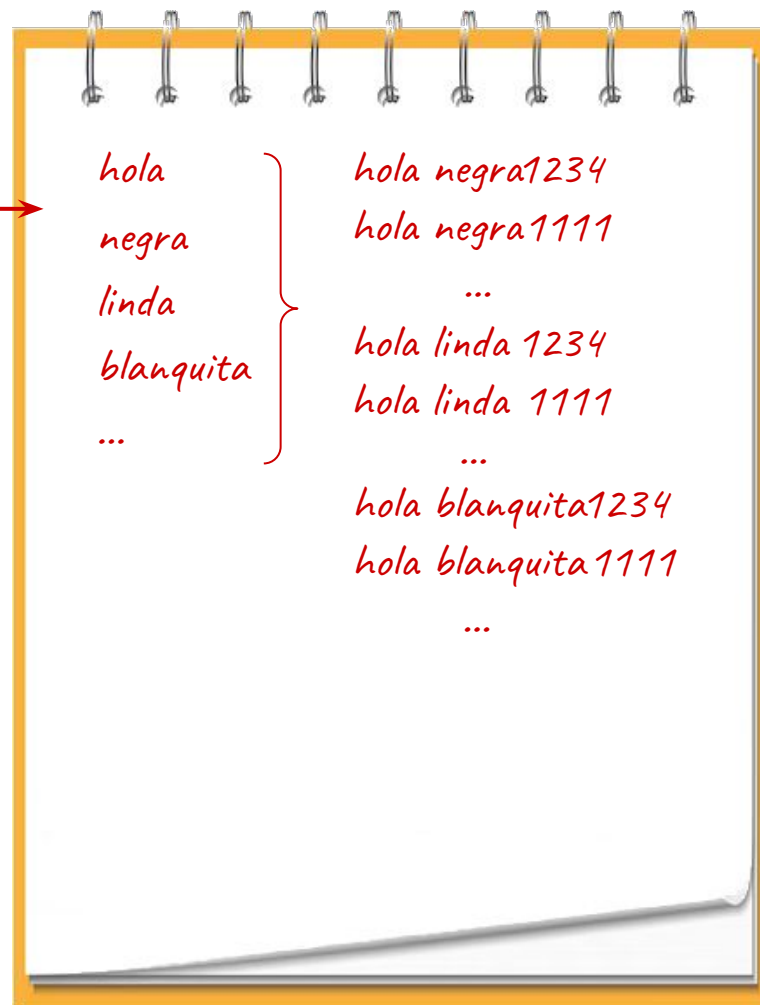 hola
negra
linda
blanquita
...
hola negra1234
hola negra1111
...
hola linda 1234
hola linda 1111
...
hola blanquita1234
hola blanquita1111
...